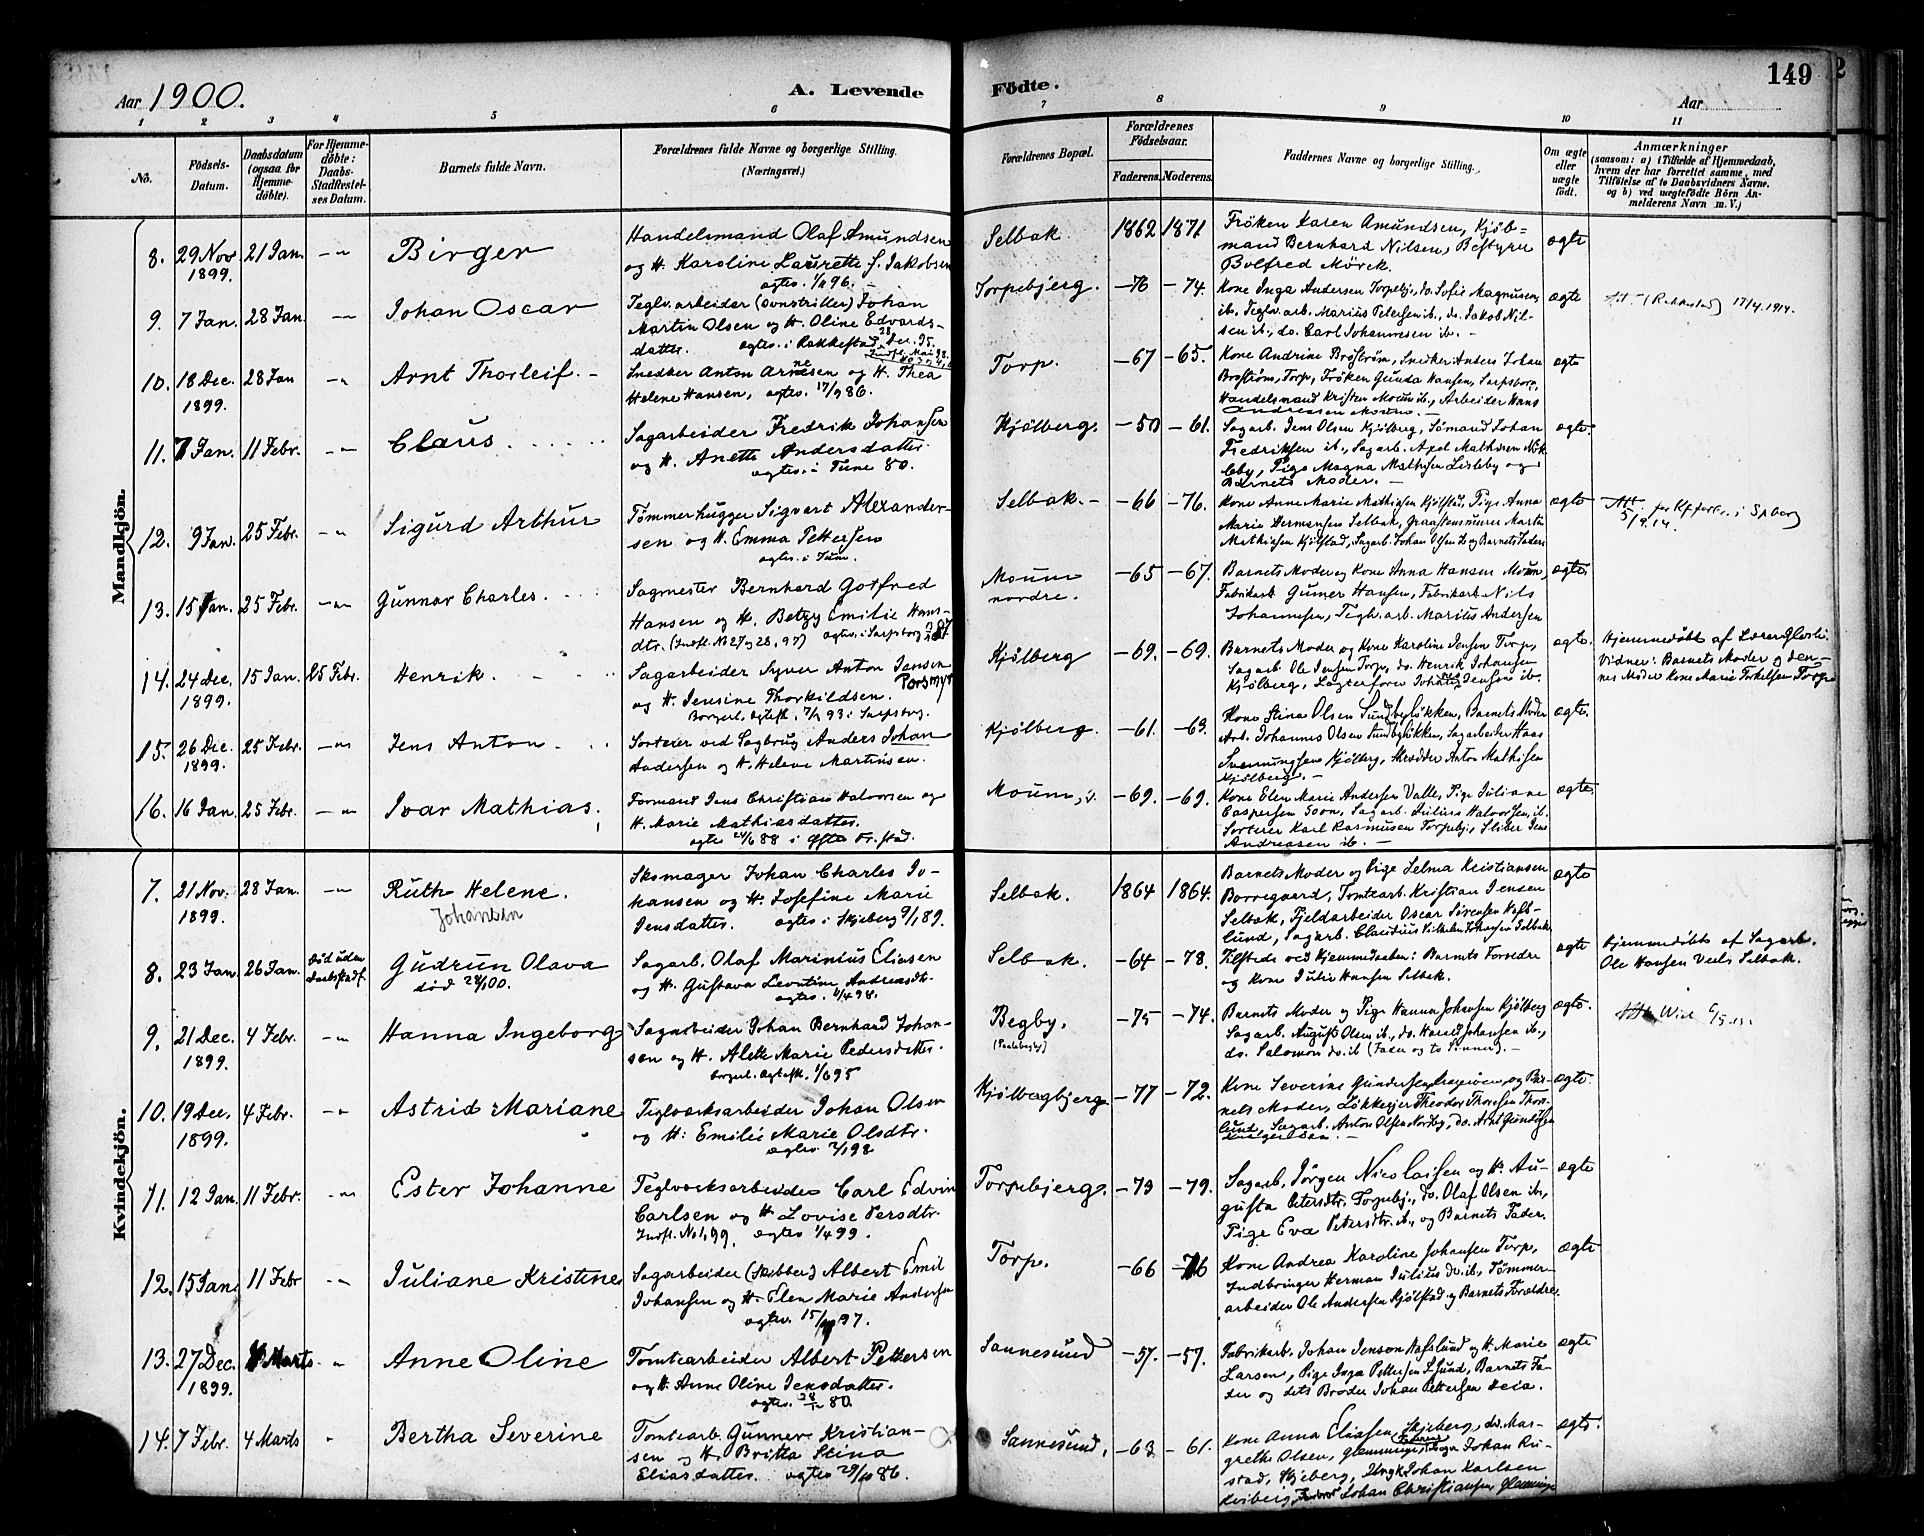 Aar 1900.
A. Levende
Födte.
149
Aar
1 2 3 4 5 6 7 8 9 10 11
No.
Födsels-Datum.
Daabsdatum (ogsaa for Hjemme-döbte).
For Hjemme-döbte: Daabs-Stadfæstel-ses Datum.
Barnets fulde Navn.
Forældrenes fulde Navne og borgerlige Stilling. (Næringsvei.)
Forældrenes Bopæl.
Forældrenes Födselsaar.
Faderens. Moderens.
Faddernes Navne og borgerlige Stilling.
Om ægte eller uægte födt.
Anmærkninger
(saasom: a) i Tilfælde af Hjemmedaab, hvem der har forrettet samme, med Tilföielse af to Daabsvidners Navne, og b) ved uægtefödte Börn An-melderens Navn m. V.)
Mandkjön.
8. 29 Nov 1899. 21 Jan. Birger
Handelsmand Olaf Amundsen
og H. Karoline Laurette f. Jakobsen
Selbak. 1862 1871
Fröken Karen Amundsen, Kjöb-
mand Bernhard Nilsen, Bestyrer
Bolfred Mörck.
ægte
9. 7 Jan. 28 Jan. Johan Oscar
Teglv.arbeider Johan
Martin Olsen og H. Oline Edvards-
datter. ægtev. i Rakkestad
Torpebjerg. -76 -74.
Kone Inga Andersen Torpebj., do. Sofie Magnusen
ib., Teglv. arb. Marius Petersen ib., do. Jakob Nil-
sen ib., do. Carl Johannesen ib.
ægte
17/4 1914.
10. 18 Dec. 1899. 28 Jan Arnt Thorleif.
Snedker Anton Arnesen og H. Thea
Helene Hansen, ægtev. 17/9 86.
Torp. -67 -65.
Kone Andrine Broström, Snedker Anders Johan
Broström, Torp, Fröken Gunda Hansen, Sarpsborg,
Handelsmand Kristen Moum ib., Arbeider Hans
Andreasen Moum.
ægte
11. 7 Jan. 11 Febr. Claus.
Sagarbeider Fredrik Johansen
og H. Anette Andersdatter
ægtev. i Tune 80.
Kjölberg. -50 -61.
Sagarb. Jens Olsen Kjölberg, Sömand Johan
Fredriksen ib., Sagarb. Axel Mathisen
Pige Magna Mathisen Lisleby og
Barnets Moder.
ægte.
12. 9 Jan. 25 Febr. Sigurd Arthur
Tömmerhugger Sigvart Alexander-
sen og H. Emma Pettersen
ægtev. i Tune.
Selbak. -66 -76.
Kone Anne Marie Mathisen Kjölstad, Pige Anna
Marie Hermansen Selbak, Martin
Mathisen Kjölstad, Sagarb. Johan Olsen ib og Barnets Fader
ægte
13. 15 Jan. 25 Febr. Gunnar Charles.
Sagmester Bernhard Gotfred
Hansen og H. Betzy Emilie Hans-
dtr. (Indfl. No 27 og 28, 97) ægtev. i Sarpsborg
Moum nordre. -65 -67.
Barnets Moder og Kone Anna Hansen Moum,
Fabrikarb. Gumer Hansen, Fabrikarb. Nils
Johannesen, Teglv. arb. Marius Andersen
ægte
14. 24 Dec. 1899. 15 Jan. 25 Febr. Henrik.
Sagarbeider Syver Anton Jensen
og H. Jensine Thorkildsen. Porsmyr
Borgerl. Ægtesk. 7/1 93 i Sarpsborg.
Kjölberg -69. -69.
Barnets Moder og Kone Karoline Jensen Torp,
Sagarb. Ole Jensen Torp, do. Henrik Johansen
Kjölberg, Jensen ib.
ægte.
Hjemmedöbt af Lærer
Vidner: Barnets Moder og den-
nes Moder Kone Marie Torkelsen Torp
15. 26 Dec. 1899. 25 Febr. Jens Anton
Sorterer ved Sagbrug Anders Johan
Andersen og H. Helene Martinsen.
Kjölberg. -61. -63.
Kone Stina Olsen Sundbylökken, Barnets Moder
Arb. Johannes Olsen Sundbylökken, Sagarbeider Hans
Svenningsen Kjölberg, Skrædder Anton Mathisen
Kjölberg.
ægte.
16. 16 Jan. 25 Febr. Ivar Mathias.
Formand Jens Christian Halvorsen og
H. Marie Mathiasdatter.
ægtev 24/6 88 i Østre Fr.stad.
Moum, -69. -69.
Kone Elen Marie Andersen Valle, Pige Juliane
Caspersen Soon, Sagarb. Julius Halvorsen, ib.
Sorterer Karl Rasmusen Torpebj., Sliber Jens
Andreasen ib.
ægte
Kvindekjön.
7. 21 Nov. 1899. 28 Jan. Ruth Helene.
Johansen
Skomager Johan Charles Jo-
hansen og H. Josefine Marie
Jensdatter. ægtev. i Skjeberg 9/1 89.
Selbak. 1864 1864.
Barnets Moder og Pige Selma Kristiansen
Borregaard, Tomtearb. Kristian Jensen
Selbak, Fjeldarbeider Oscar Sörensen Hafs-
lund, Sagarb. Claudius Vilhelm Johansen Selbak
ægte
8. 23 Jan 26 Jan. Död uden Daabsstadf. Gudrun Olava
död 28/1 00.
Sagarb. Olaf Marinius Eliasen
og H. Gustava Leontine Andreasdtr.
ægtev. 11/4 98.
Selbak. -64 -78.
Tilstede ved Hjemmedaaben: Barnets Forældre
og Kone Julie Hansen Selbak.
ægte
Hjemmedöbt af Sagarb.
Ole Hansen Veels Selbak.
9. 21 Dec. 1899. 4 Febr. Hanna Ingeborg
Sagarbeider Johan Bernhard Johan-
sen og H. Alette Marie Pedersdatter.
borgerl. Ægtesk. 1/6 95
Begby. -75 -74.
Barnets Moder og Pige Hanna Johansen Kjölberg
Sagarb. August Olsen ib., do. Harald Johansen ib.,
do. Salomon do. ib (Fader og to Sönner).
ægte.
10. 19 Dec. 1899. 4 Febr. Astrid Mariane
Teglverksarbeider Johan Olsen
og H. Emilie Marie Olsdtr.
ægtev. 2/1 98
Kjölbergbjerg -77 -72.
Kone Severine Gundersen og Bar-
nets Moder, Lökkeeier Theodor Thoresen Thors-
lund, Sagarb. Anton Olsen Nordby, do. Arnt Gundersen
ægte.
11. 12 Jan. 11 Febr. Ester Johanne
Teglverksarbeider Carl Edvin
Carlsen og H. Lovise Persdtr.
Indfl. No 1, 99. ægtev 1/4 99.
Torpebjerg. -73 -79.
Sagarb. Jörgen Nicolaisen og H. Au-
gusta Petersdtr. Torpebj., do. Olaf Olsen ib.,
Pige Eva Petersdtr. ib., og Barnets Fader.
ægte
12. 15 Jan. 11 Febr Juliane Kristine
Sagarbeider (Skibber) Albert Emil
Johansen og H. Elen Marie Andersen
Torp. -66 -76
Kone Andrea Karoline Johansen Torp,
Indbringer Herman Julius do. ib., Tömmer-
arbeider Ole Andersen Kjölstad og Barnets Forældre.
ægte
13. 27 Dec. 1899. 4 Marts Anne Oline
Tomtearbeider Albert Pettersen
og H. Anne Oline Jensdatter.
Sannesund -57. -57.
Fabrikarb. Johan Jensen Hafslund og H. Marie
Larsen, Pige Inga Pettersen S.sund, Barnets Fa-
der og dets Broder Johan Pettersen Heia.
ægte
14. 7 Febr. 4 Marts Bertha Severine
Tomtearb. Gunner Kristian-
sen og H. Britta Stina
Eliasdatter.
Sannesund, -63 -61.
Kone Anna Eliasen, Skjeberg, do. Mar-
grethe Olsen, Johan Ru-
stad, Skjeberg, Ungk. Johan Karlsen
Johan Christiansen Glemminge
ægte.